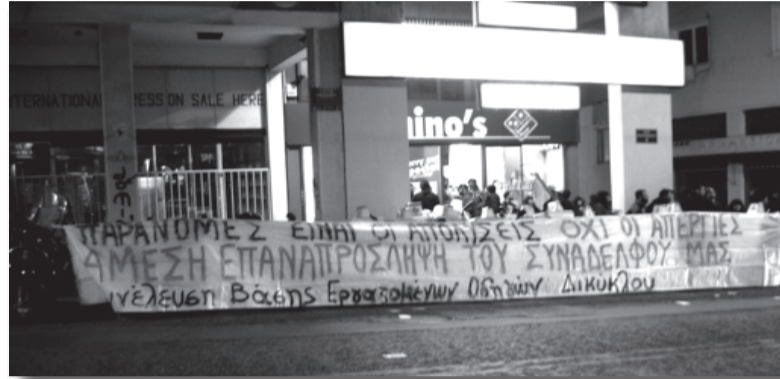 INTERNATIONAL PRESS ON SALE HERE
ino's
ΠΑΡΑΝΟΜΕΣ ΕΙΝΑΙ ΟΙ ΑΠΟΛΥΣΕΙΣ ΟΧΙ ΟΙ ΑΠΕΡΓΙΕΣ
ΑΜΕΣΗ ΕΠΑΝΑΠΡΟΣΛΗΨΗ ΤΟΥ ΣΥΝΑΔΕΛΦΟΥ ΜΑΣ
νέλευση Βάσης Εργαζομένων Οδηγών Δικύκλου